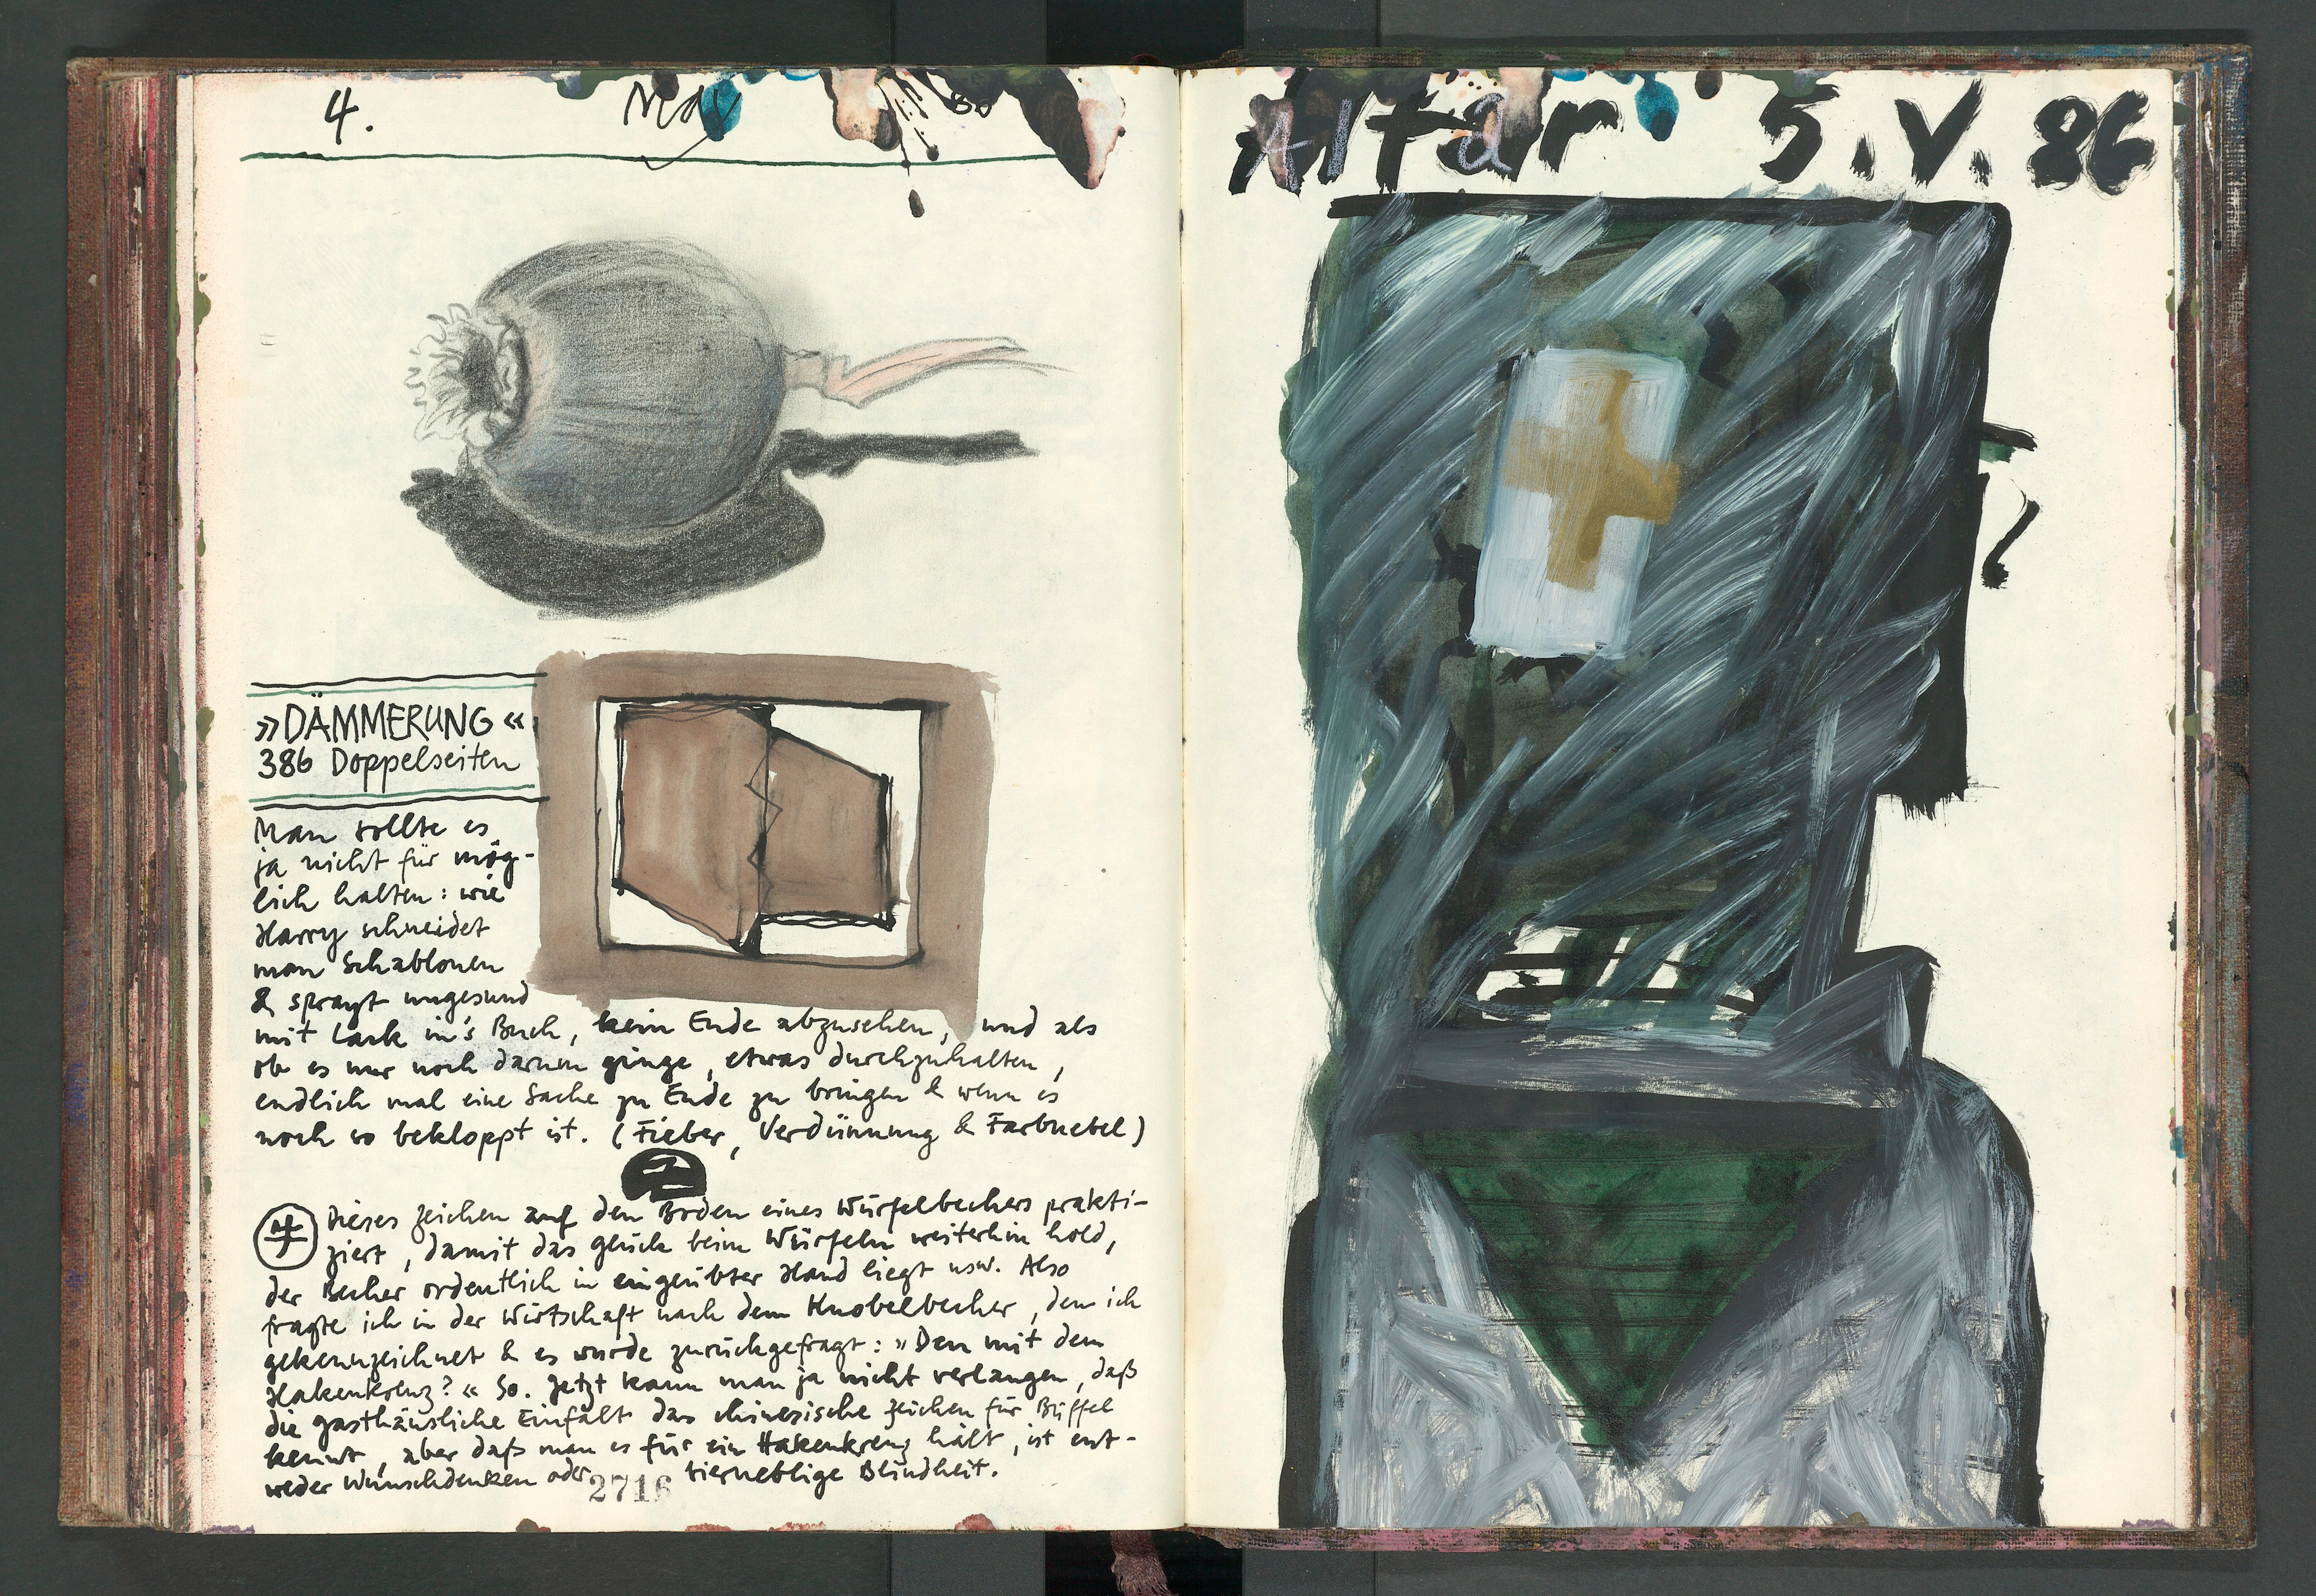 4. May 86
»DÄMMERUNG«
386 Doppelseiten
Man sollte es
ja nicht für mög-
lich halten: wie
Harry schneidet
man Schablonen
& sprayt ungesund
mit Lack in's Buch, kein Ende abzusehen, und als
ob es nur noch darum ginge, etwas durchzuhalten,
endlich mal eine Sache zu Ende zu bringen & wenn es
noch so bekloppt ist. (Fieber, Verdünnung & Farbnebel)
Dieses Zeichen auf den Boden eines Würfelbechers prakti-
ziert, damit das Glück beim Würfeln weiterhin hold,
der Becher ordentlich in eingeübter Hand liegt usw. Also
fragte ich in der Wirtschaft nach dem Knobelbecher, den ich
gekennzeichnet & es wurde zurückgefragt: »Den mit dem
Hakenkreuz?« So. Jetzt kann man ja nicht verlangen, daß
die gasthäusliche Einfalt das chinesische Zeichen für Büffel
kennt, aber daß man es für ein Hakenkreuz hält, ist ent-
weder Wunschdenken oder bierneblige Blindheit.
2716
Altar 5.V.86